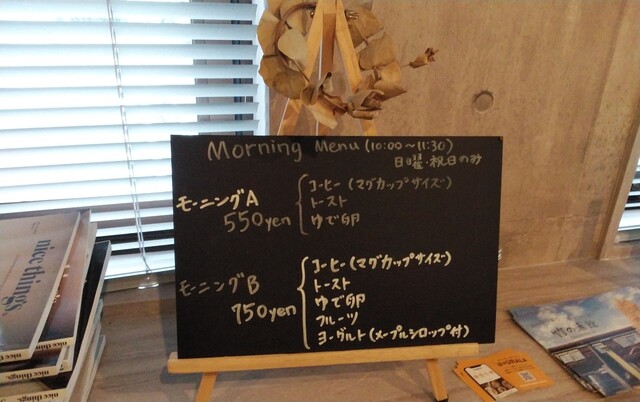 Morning Menu (10:00〜11:30)
日曜・祝日のみ
モーニングA
550yen
コーヒー (マグカップサイズ)
トースト
ゆで卵
モーニングB
750yen
コーヒー (マグカップサイズ)
トースト
ゆで卵
フルーツ
ヨーグルト(メープルシロップ付)
nice things.
nice things.
nice things.